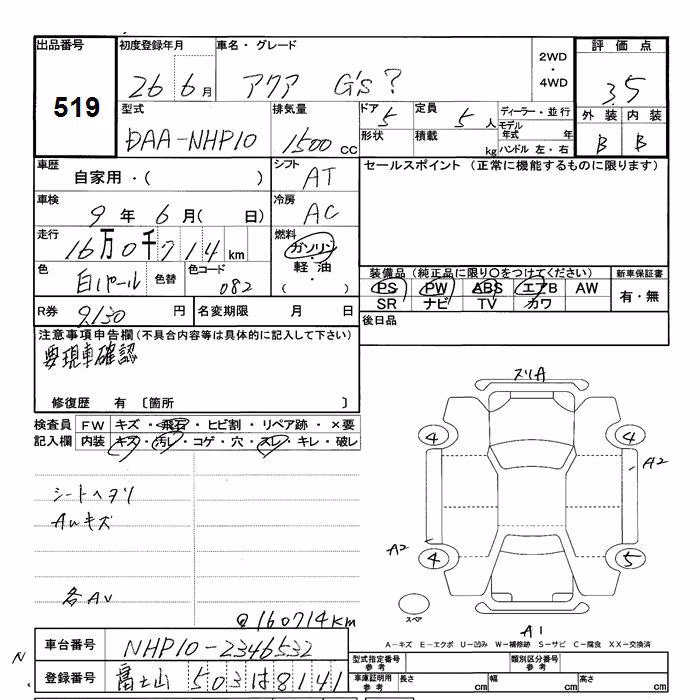 出品番号 初度登録年月 車名・グレード 2WD・4WD 評価点
519 26 6月 アクア G's? 3.5
型式 排気量 ドア 5 定員 5人 ディーラー・並行 外装 内装
DAA-NHP10 1500cc 形状 積載 kg モデル年式 年 B B
ハンドル 左・右
車歴 自家用・( ) シフト AT セールスポイント (正常に機能するものに限ります)
車検 9年 6月( 日) 冷房 AC
走行 16万0千714km 燃料 ガソリン・軽油・( )
色 白パール 色替 色コード 082 装備品(純正品に限り○をつけてください) 新車保証書
PS PW ABS エアB AW 有・無
SR ナビ TV カワ
R券 9,130円 名変期限 月 日 後日品
注意事項申告欄(不具合内容等は具体的に記入して下さい)
要現車確認
修復歴 有 〔箇所 〕
検査員 FW キズ・飛石・ヒビ割・リペア跡・×要
記入欄 内装 キズ・汚レ・コゲ・穴・スレ・キレ・破レ
スリA
4 4
A2
シートヘタリ
Auキズ
A2
4 5
各AU
スペア
@160714km
A1
A-キズ E-エクボ U-凹み W-補修跡 S-サビ C-腐食 XX-交換済
車台番号 NHP10-2346532 型式指定番号 参考 類別区分番号 参考
N
登録番号 富士山 503 は 8141 車庫証明用 参考 長さ cm 幅 cm 高さ cm